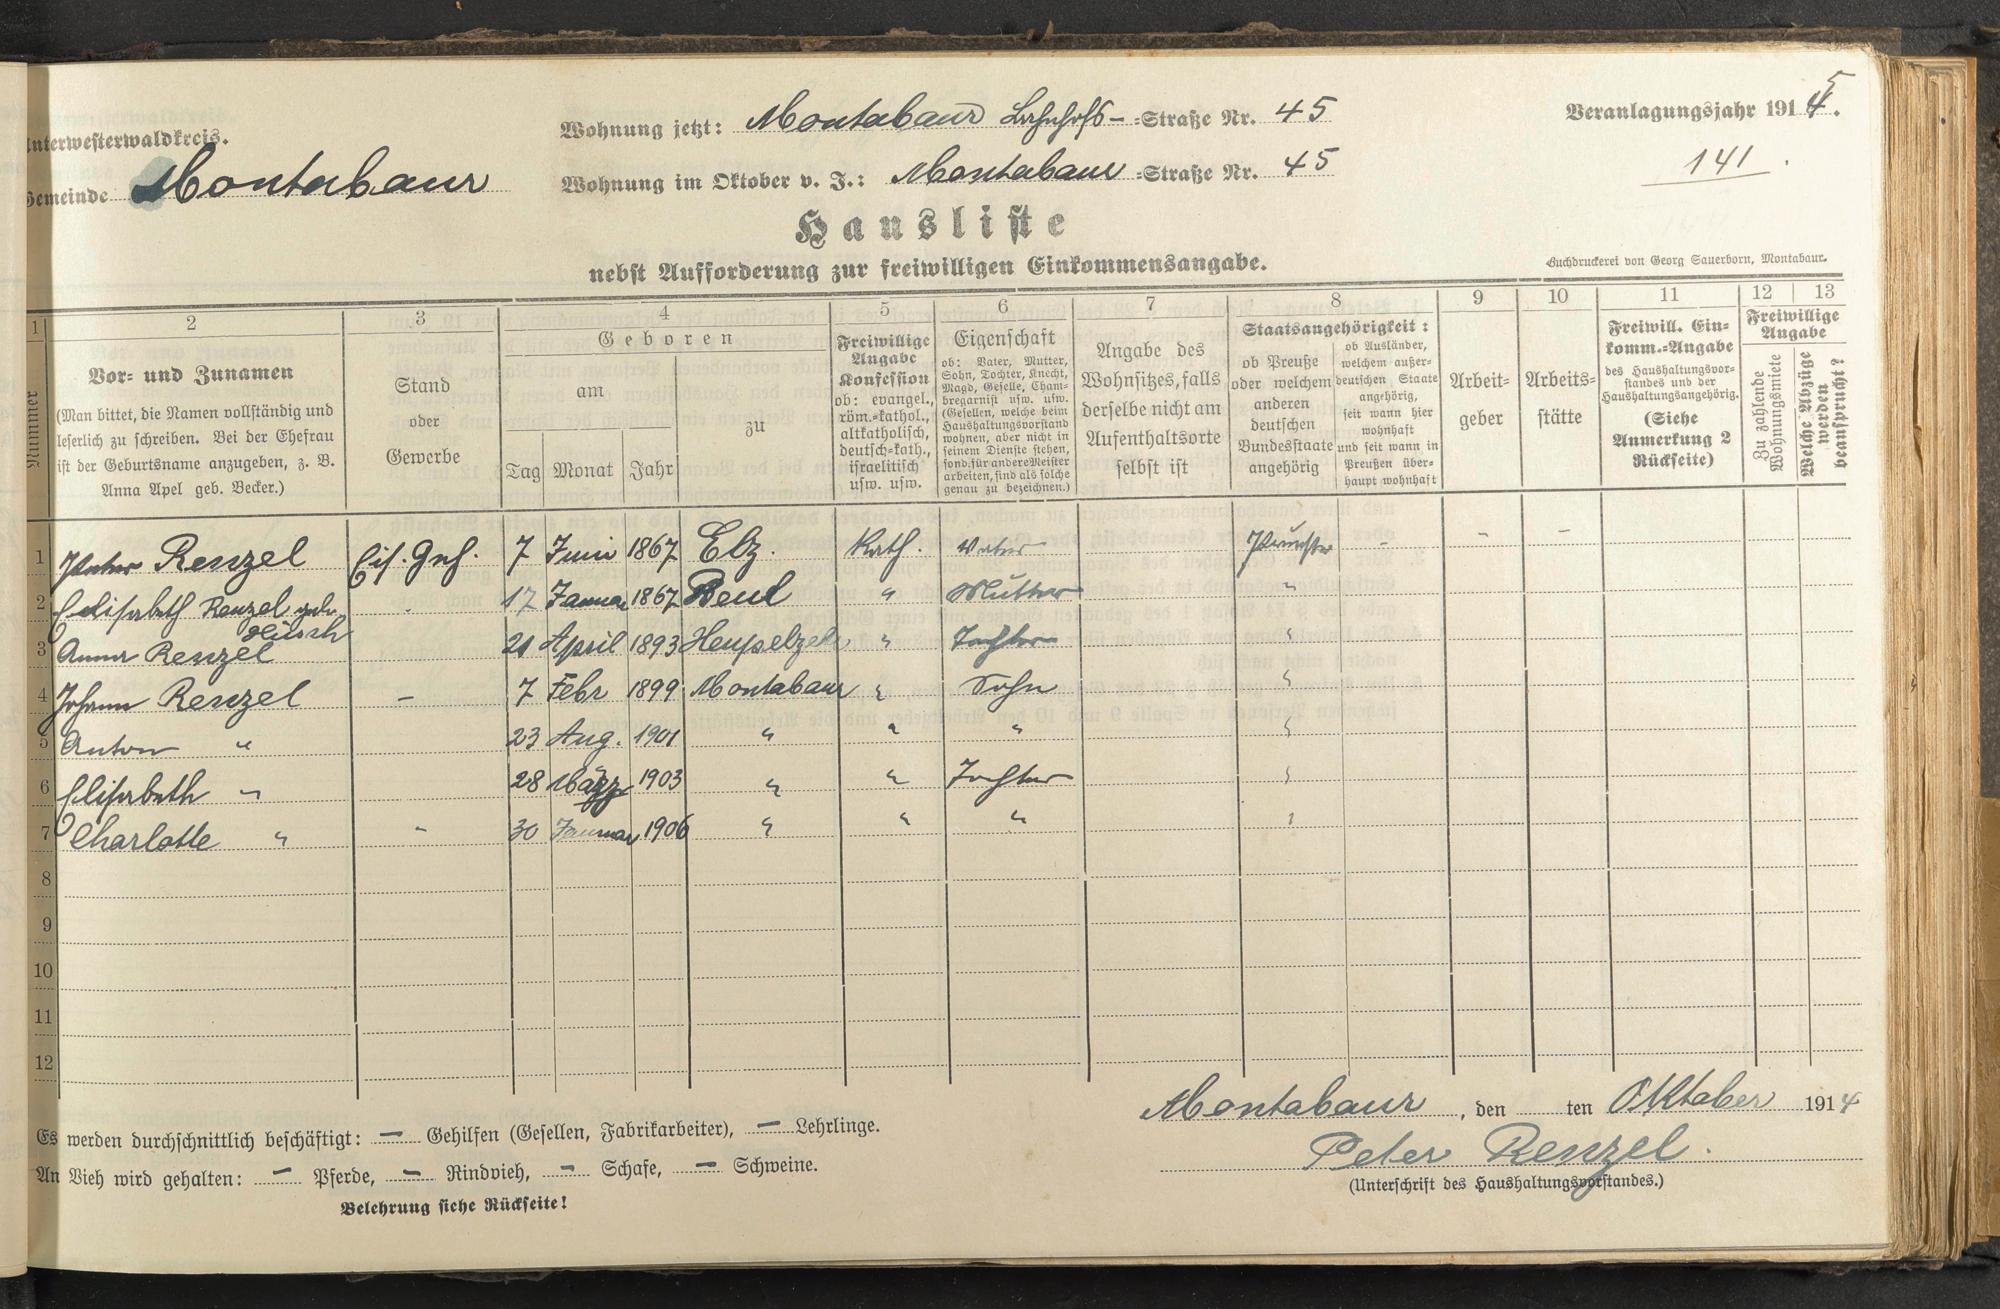 Unterwesterwaldkreis.
Gemeinde Montabaur
Wohnung jetzt: Montabaur Bahnhofs- =Straße Nr. 45
Wohnung im Oktober v. J.: Montabaur =Straße Nr. 45
Veranlagungsjahr 1914. 5
141
Hausliste
nebst Aufforderung zur freiwilligen Einkommensangabe.
Buchdruckerei von Georg Sauerborn, Montabaur.
1 2 3 4 5 6 7 8 9 10 11 12 13
Nummer
Vor= und Zunamen
(Man bittet, die Namen vollständig und
leserlich zu schreiben. Bei der Ehefrau
ist der Geburtsname anzugeben, z. B.
Anna Apel geb. Becker.)
Stand
oder
Gewerbe
Geboren
am
zu
Tag Monat Jahr
Freiwillige
Angabe
Konfession
ob: evangel.,
röm.=kathol.,
altkatholisch,
deutsch=kath.,
israelitisch
usw. usw.
Eigenschaft
ob: Vater, Mutter,
Sohn, Tochter, Knecht,
Magd, Geselle, Cham=
bregarnist usw. usw.
(Gesellen, welche beim
Haushaltungsvorstand
wohnen, aber nicht in
seinem Dienste stehen,
sond. für andere Meister
arbeiten, sind als solche
genau zu bezeichnen.)
Angabe des
Wohnsitzes, falls
derselbe nicht am
Aufenthaltsorte
selbst ist
Staatsangehörigkeit:
ob Preuße
oder welchem
anderen
deutschen
Bundesstaate
angehörig
ob Ausländer,
welchem außer=
deutschen Staate
angehörig,
seit wann hier
wohnhaft
und seit wann in
Preußen über=
haupt wohnhaft
Arbeit=
geber
Arbeits=
stätte
Freiwill. Ein=
komm.=Angabe
des Haushaltungsvor=
standes und der
Haushaltungsangehörig.
(Siehe
Anmerkung 2
Rückseite)
Freiwillige
Angabe
Zu zahlende
Wohnungsmiete
Welche Abzüge
werden
beansprucht?
1 Peter Renzel Eis. 7 Juni 1867 Elz. Kath. Vater - -
2 Elisabeth Renzel geb. Hüsch 17 Januar 1867 " Mutter "
3 Anna Renzel 21 April 1893 " Tochter "
4 Johann Renzel - 7 Febr 1899 Montabaur " Sohn "
5 Anton " 23 Aug. 1901 " " " "
6 Elisabeth " 28 März 1903 " " Tochter "
7 Charlotte " " 30 Januar 1906 " " " "
8
9
10
11
12
Montabaur, den ten Oktober 1914
Peter Renzel.
(Unterschrift des Haushaltungsvorstandes.)
Es werden durchschnittlich beschäftigt: - Gehilfen (Gesellen, Fabrikarbeiter), - Lehrlinge.
An Vieh wird gehalten: - Pferde, - Rindvieh, - Schafe, - Schweine.
Belehrung siehe Rückseite!